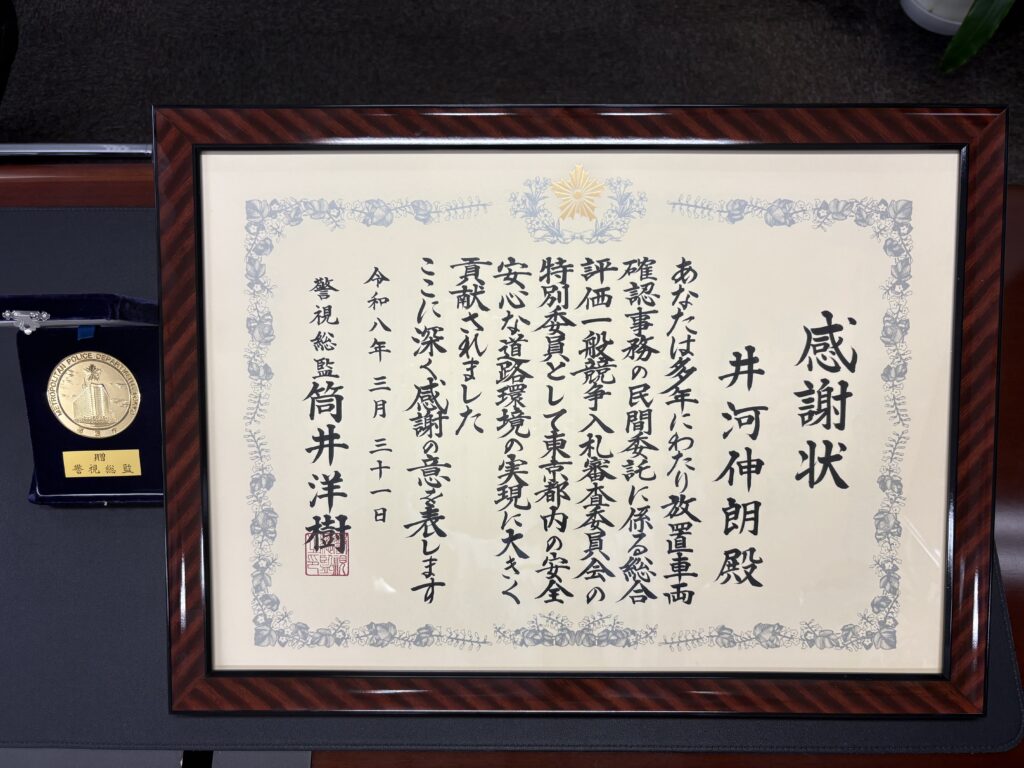 感謝状
井河伸朗殿
あなたは多年にわたり放置車両
確認事務の民間委託に係る総合
評価一般競争入札審査委員会の
特別委員として東京都内の安全
安心な道路環境の実現に大きく
貢献されました
ここに深く感謝の意を表します
令和八年 三月 三十一日
警視総監 筒井洋樹
METROPOLITAN POLICE DEPARTMENT
贈
警視総監